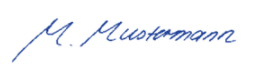 M. Mustermann